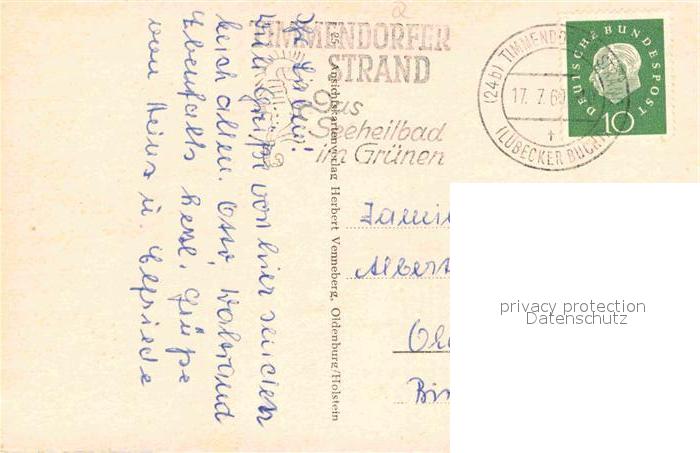 TIMMENDORFER
STRAND
Das
Seeheilbad
im Grünen
(24b) TIMMENDORFER STRAND
17. 7. 60
(LÜBECKER BUCHT)
DEUTSCHE BUNDESPOST
10
Ihr Lieben!
Viele Grüße von hier senden
Euch allen. Otto, Waltraud
Ebenfalls herzl. Grüße
von Heinz u. Elfriede
25 Ansichtskartenverlag Herbert Venneberg, Oldenburg/Holstein
Famil
Albert
Ol
Bi
privacy protection
Datenschutz